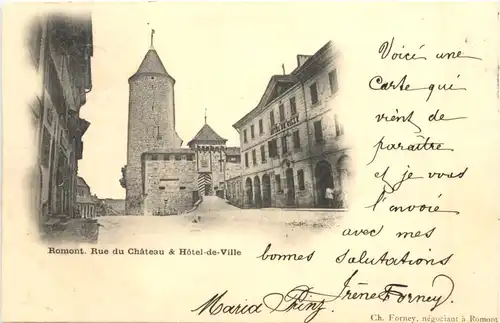 Voici une
Carte qui
vient de
paraître
et je vous
l'envoie
avec mes
bonnes salutations
Irène Forney
Maria
Romont. Rue du Château & Hôtel-de-Ville
Ch. Forney, négociant à Romont